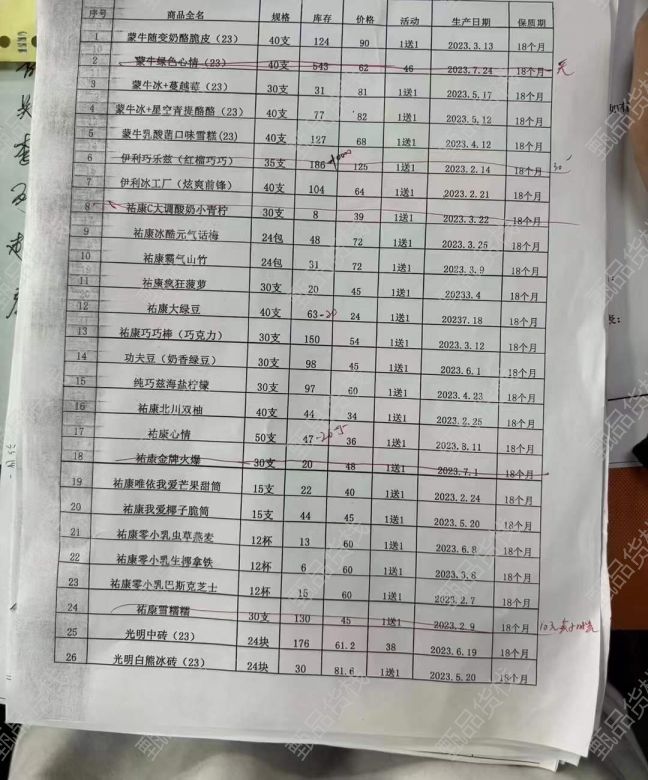 序号 商品全名 规格 库存 价格 活动 生产日期 保质期
1 蒙牛随变奶酪脆皮（23） 40支 124 90 1送1 2023.3.13 18个月
2 蒙牛绿色心情（23） 40支 543 62 46 2023.7.24 18个月
3 蒙牛冰+蔓越莓（23） 30支 31 81 1送1 2023.5.17 18个月
4 蒙牛冰+星空青提酪酪（23） 40支 77 82 1送1 2023.5.12 18个月
5 蒙牛乳酸菌口味雪糕(23) 40支 127 68 1送1 2023.4.12 18个月
6 伊利巧乐兹（红榴巧巧） 35支 186 125 1送1 2023.2.14 18个月 30
7 伊利冰工厂（炫爽前锋） 40支 104 64 1送1 2023.2.21 18个月
8 祐康C大调酸奶小青柠 30支 8 39 1送1 2023.3.22 18个月
9 祐康冰酷元气话梅 24包 48 72 1送1 2023.3.25 18个月
10 祐康霸气山竹 24包 31 72 1送1 2023.3.9 18个月
11 祐康疯狂菠萝 30支 20 45 1送1 20233.4 18个月
12 祐康大绿豆 40支 63-20 24 1送1 20237.18 18个月
13 祐康巧巧棒（巧克力） 30支 150 54 1送1 2023.3.12 18个月
14 功夫豆（奶香绿豆） 30支 98 45 1送1 2023.6.1 18个月
15 纯巧兹海盐柠檬 30支 97 60 1送1 2023.4.23 18个月
16 祐康北川双柚 40支 44 34 1送1 2023.2.25 18个月
17 祐康心情 50支 47-20 36 1送1 2023.8.11 18个月
18 祐康金牌火爆 30支 20 48 1送1 2023.7.1 18个月
19 祐康唯依我爱芒果甜筒 15支 22 40 1送1 2023.2.24 18个月
20 祐康我爱椰子脆筒 15支 44 45 1送1 2023.5.20 18个月
21 祐康零小乳虫草燕麦 12杯 13 60 1送1 2023.6.8 18个月
22 祐康零小乳生椰拿铁 12杯 6 60 1送1 2023.3.6 18个月
23 祐康零小乳巴斯克芝士 12杯 15 60 1送1 2023.2.7 18个月
24 祐康雪糯糯 30支 130 45 1送1 2023.2.9 18个月
25 光明中砖（23） 24块 176 61.2 38 2023.6.19 18个月
26 光明白熊冰砖（23） 24块 30 81.6 1送1 2023.5.20 18个月
甄品货栈